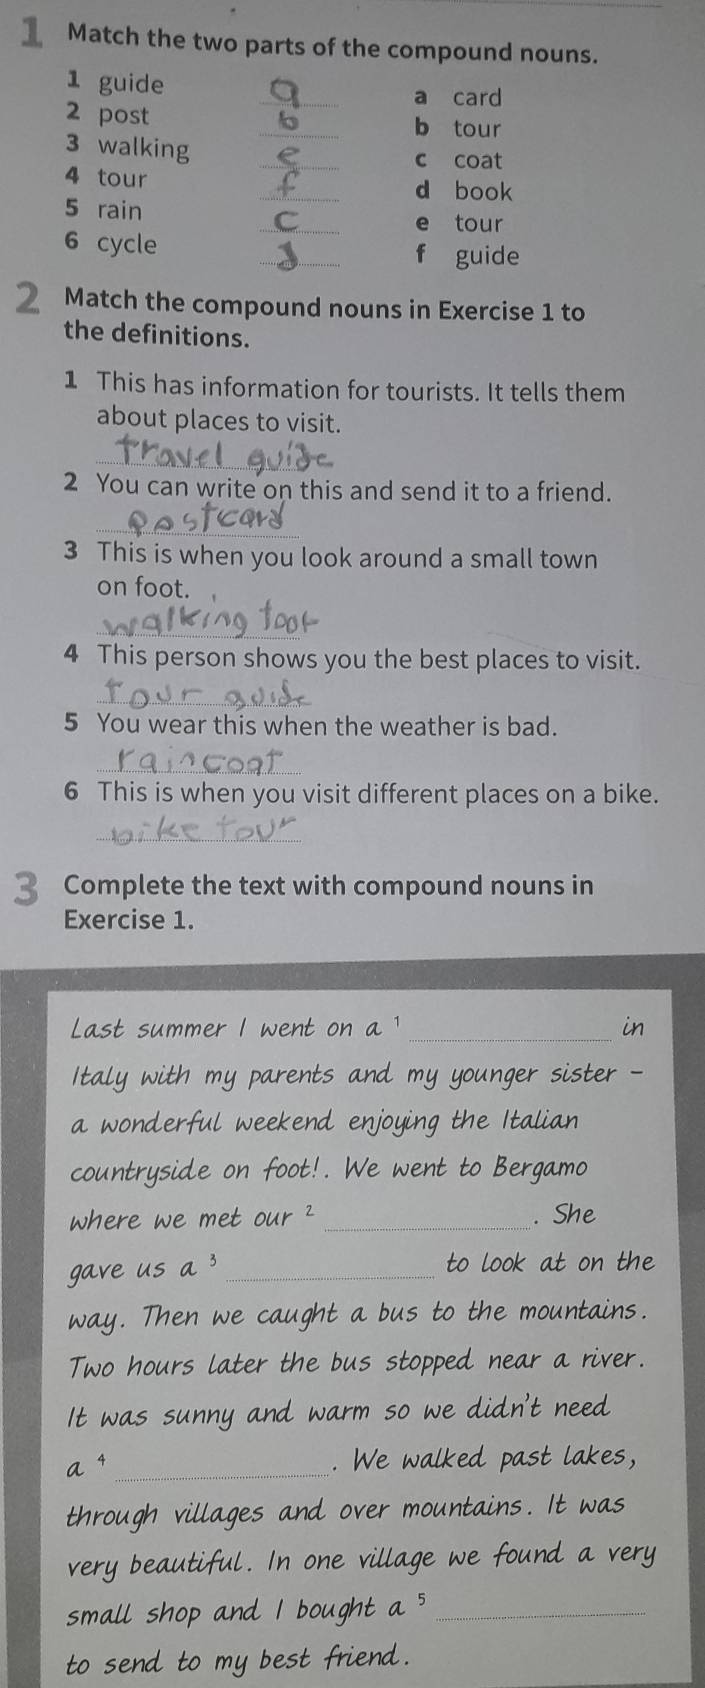 1 Match the two parts of the compound nouns.
1 guide a a card
2 post b b tour
3 walking e c coat
4 tour f d book
5 rain c e tour
6 cycle d f guide
2 Match the compound nouns in Exercise 1 to
the definitions.
1 This has information for tourists. It tells them
about places to visit.
travel guide
2 You can write on this and send it to a friend.
postcard
3 This is when you look around a small town
on foot.
walking toor
4 This person shows you the best places to visit.
tour guide
5 You wear this when the weather is bad.
raincoat
6 This is when you visit different places on a bike.
bike tour
3 Complete the text with compound nouns in
Exercise 1.
Last summer I went on a 1 in
Italy with my parents and my younger sister –
a wonderful weekend enjoying the Italian
countryside on foot!. We went to Bergamo
where we met our 2 . She
gave us a 3 to look at on the
way. Then we caught a bus to the mountains.
Two hours later the bus stopped near a river.
It was sunny and warm so we didn't need
a 4 . We walked past lakes,
through villages and over mountains. It was
very beautiful. In one village we found a very
small shop and I bought a 5
to send to my best friend.